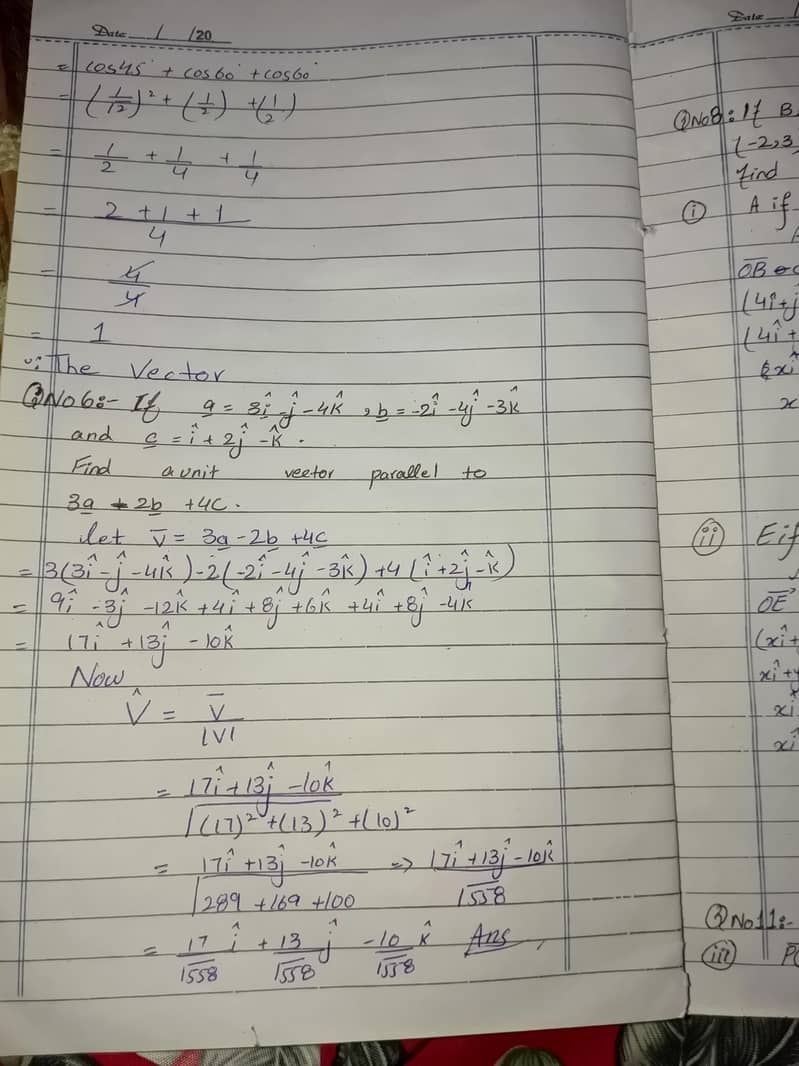 Date / /20
= cos45° + cos60° + cos60°
= (1/√2)² + (1/2) + (1/2)
= 1/2 + 1/4 + 1/4
= 2 + 1 + 1 / 4
= 4/4
= 1
∵ The Vector
QNo6:- If a = 3î - ĵ - 4k̂ , b = -2î - 4ĵ - 3k̂
and c = î + 2ĵ - k̂ .
Find a unit vector parallel to
3a - 2b + 4c.
let v̅ = 3a - 2b + 4c
= 3(3î - ĵ - 4k̂) - 2(-2î - 4ĵ - 3k̂) + 4(î + 2ĵ - k̂)
= 9î - 3ĵ - 12k̂ + 4î + 8ĵ + 6k̂ + 4î + 8ĵ - 4k̂
= 17î + 13ĵ - 10k̂
Now
V̂ = v̅ / |V|
= 17î + 13ĵ - 10k̂ / √(17)² + (13)² + (10)²
= 17î + 13ĵ - 10k̂ / √289 + 169 + 100 => 17î + 13ĵ - 10k̂ / √558
= 17/√558 î + 13/√558 ĵ - 10/√558 k̂ Ans
Date /
QNo8: If B
(-2,3
find
(i) A if
OB
(4î + j
(4î +
xî
x
(ii) E if
OE
(xî +
xî + y
xî
xî
QNo11:-
(iii) P